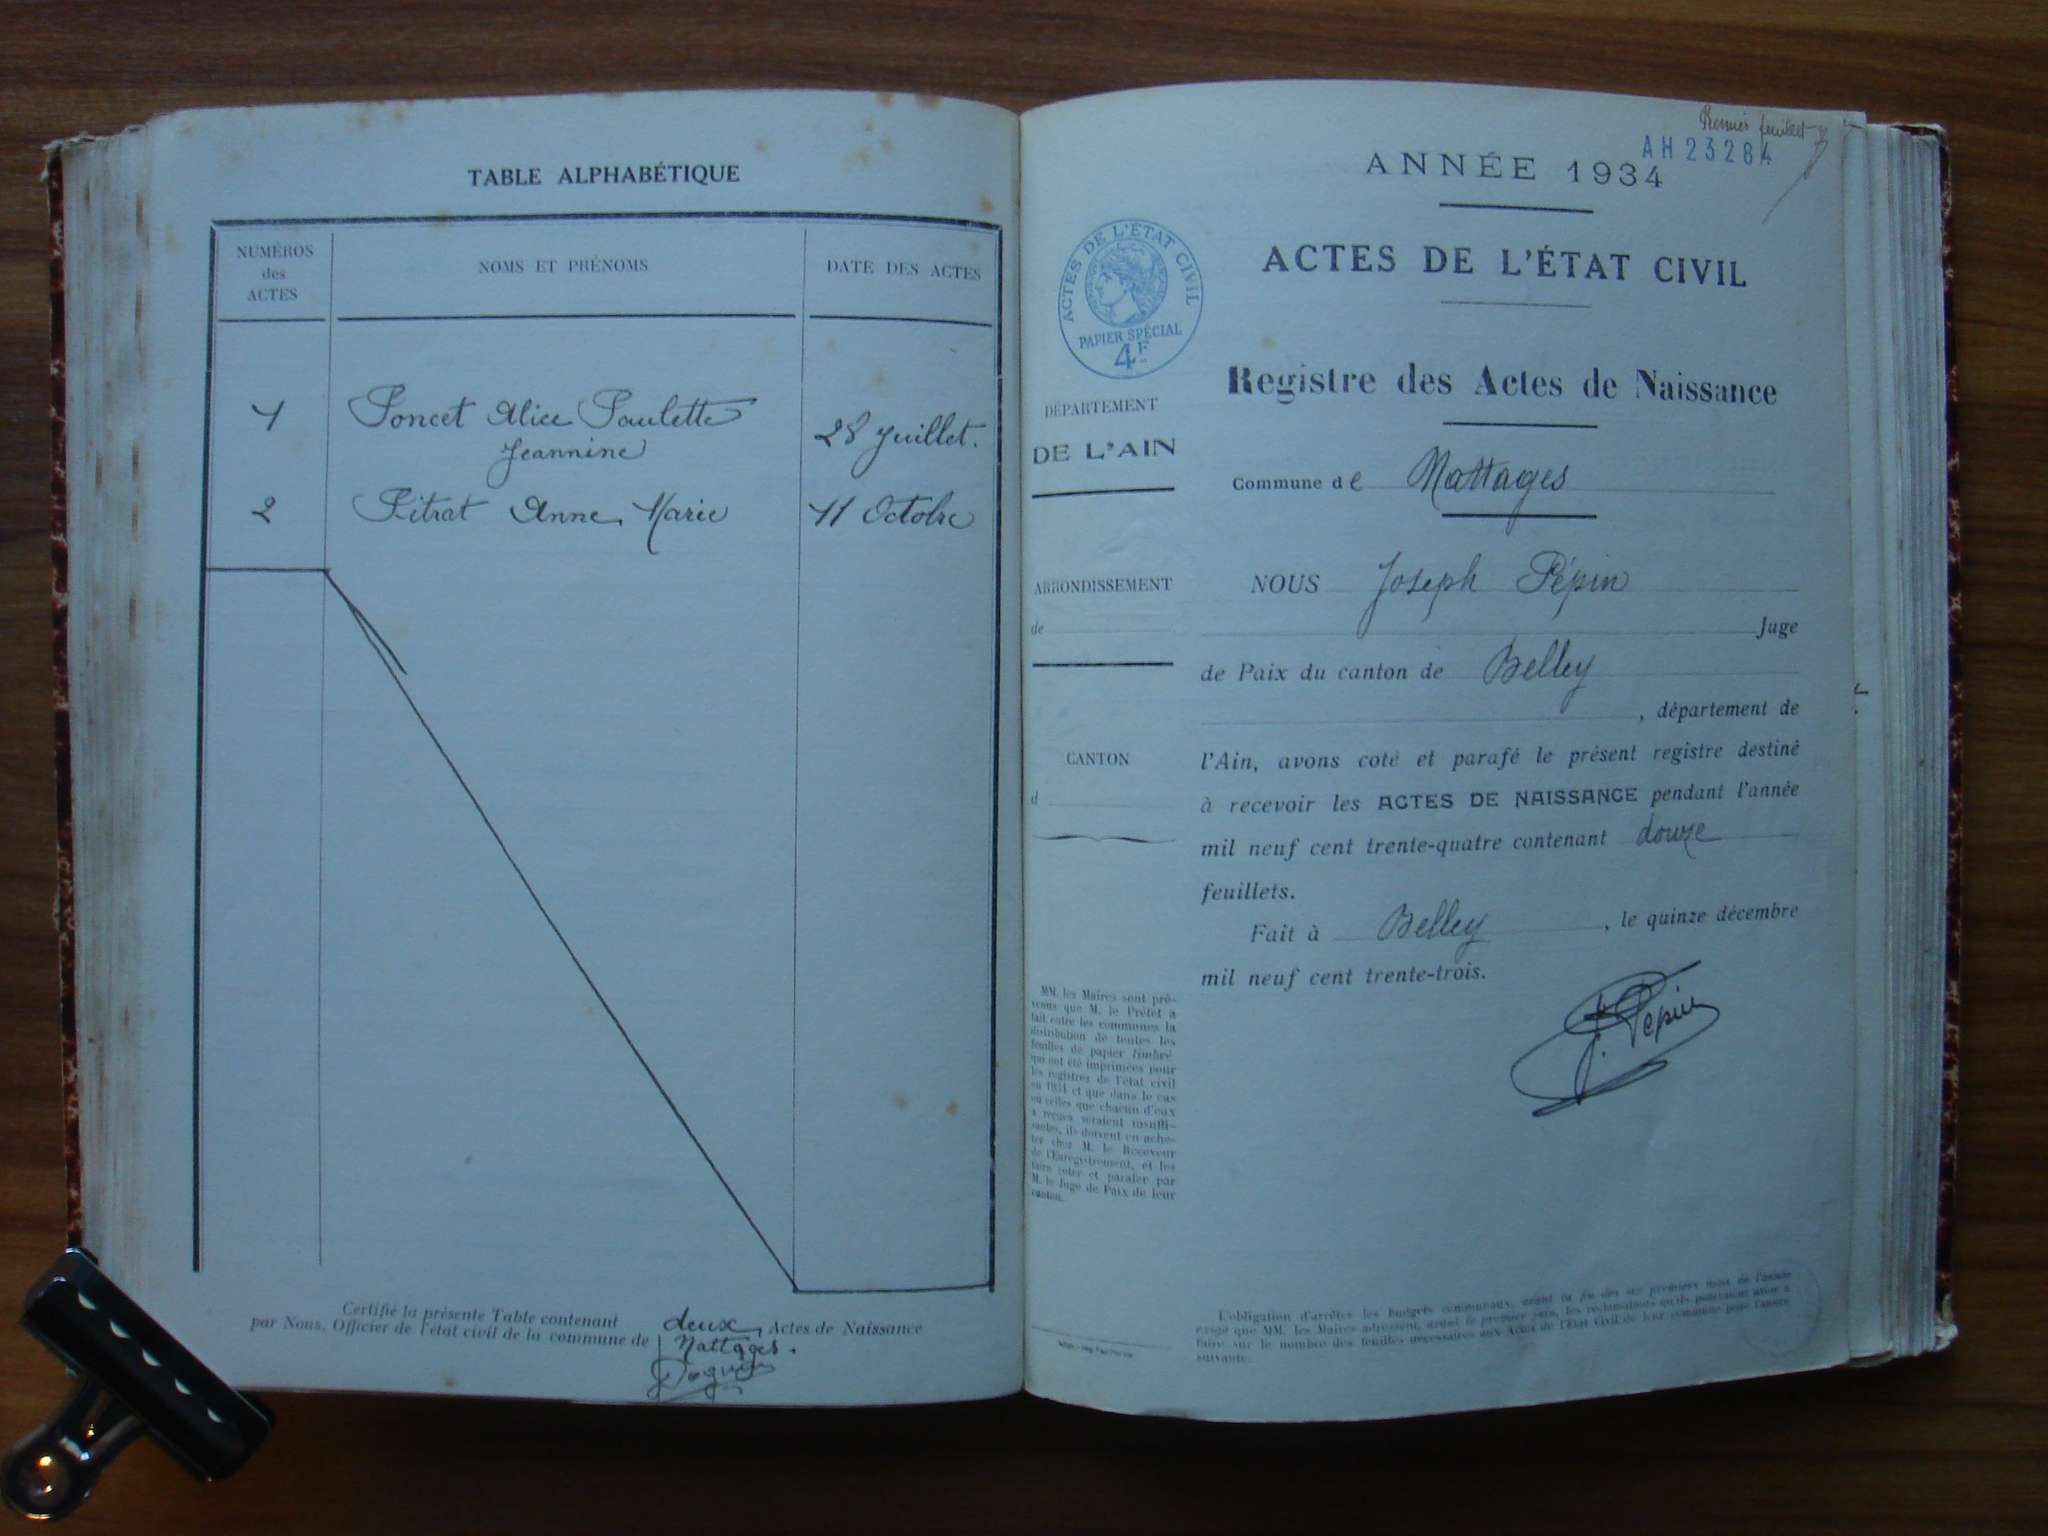 TABLE ALPHABÉTIQUE
NUMÉROS
des
ACTES
NOMS ET PRÉNOMS
DATE DES ACTES
1 Poncet Alice Paulette
Jeannine
28 Juillet.
2 Pitrat Anne Marie 11 Octobre
Certifié la présente Table contenant deux Actes de Naissance
par Nous, Officier de l'état civil de la commune de Nattages.
Premier feuillet
AH 23284
ANNÉE 1934
ACTES DE L'ÉTAT CIVIL
PAPIER SPÉCIAL
4F
ACTES DE L'ÉTAT CIVIL
Registre des Actes de Naissance
DÉPARTEMENT
DE L'AIN
Commune de Nattages
ARRONDISSEMENT
de
CANTON
d
NOUS Joseph Pépin
Juge
de Paix du canton de Belley
, département de
l'Ain, avons coté et parafé le présent registre destiné
à recevoir les ACTES DE NAISSANCE pendant l'année
mil neuf cent trente-quatre contenant douze
feuillets.
Fait à Belley, le quinze décembre
mil neuf cent trente-trois.
J. Pépin
MM. les Maires sont pré-
venus que M. le Préfet a
fait entre les communes la
distribution de toutes les
feuilles de papier timbré
qui ont été imprimées pour
les registres de l'état civil
en 1934 et que dans le cas
où celles que chacun d'eux
a reçues seraient insuffi-
santes, ils doivent en ache-
ter chez M. le Receveur
de l'Enregistrement, et les
faire coter et parafer par
M. le Juge de Paix de leur
canton.
L'obligation d'arrêter les budgets communaux, avant la fin des six premiers mois de l'année
exige que MM. les Maires adressent, avant le premier juin, les réclamations qu'ils pourraient avoir à
faire sur le nombre des feuilles nécessaires aux Actes de l'État Civil de leur commune pour l'année
suivante.